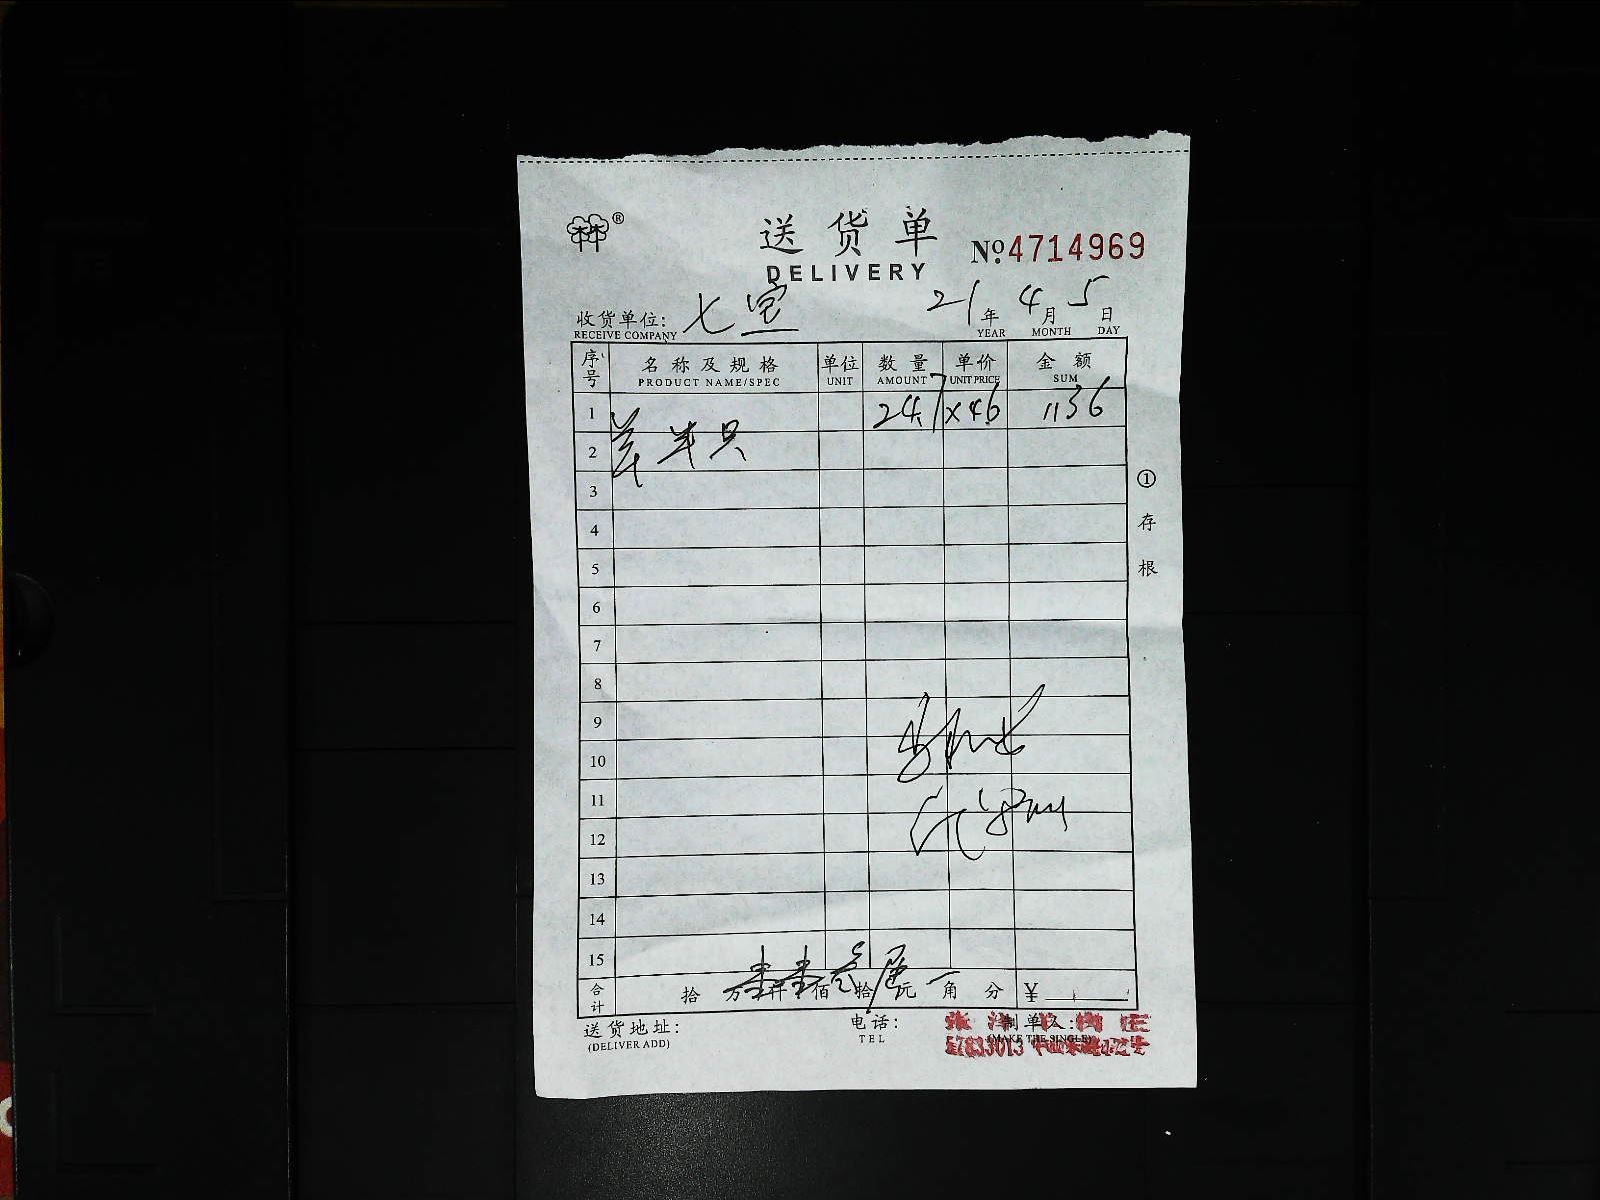 林林®
送货单
DELIVERY
№4714969
收货单位: 七室 21年4月5日
RECEIVE COMPANY YEAR MONTH DAY
序号 名称及规格 单位 数量 单价 金额
PRODUCT NAME/SPEC UNIT AMOUNT UNIT PRICE SUM
1 24.7 ×46 1136
2 羊半只
3
4
5
6
7
8
9
10
11
12
13
14
15
合计 拾 万壹仟壹佰叁拾陆元 角 分 ¥
送货地址: 电话: 制单人:
(DELIVER ADD) TEL (MAKE THE SINGLE)
57833013
①存根